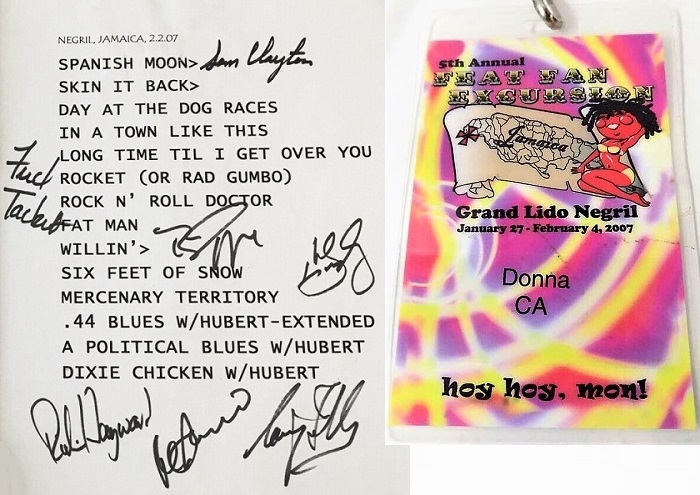 NEGRIL, JAMAICA, 2.2.07
SPANISH MOON> Sam Clayton
SKIN IT BACK>
DAY AT THE DOG RACES
IN A TOWN LIKE THIS
LONG TIME TIL I GET OVER YOU
Fred
ROCKET (OR RAD GUMBO)
Tackett
ROCK N' ROLL DOCTOR
FAT MAN
WILLIN'>
SIX FEET OF SNOW
MERCENARY TERRITORY
.44 BLUES W/HUBERT-EXTENDED
A POLITICAL BLUES W/HUBERT
DIXIE CHICKEN W/HUBERT
Richie Hayward
5th Annual
FEAT FAN
EXCURSION
Jamaica
Grand Lido Negril
January 27 - February 4, 2007
Donna
CA
hoy hoy, mon!